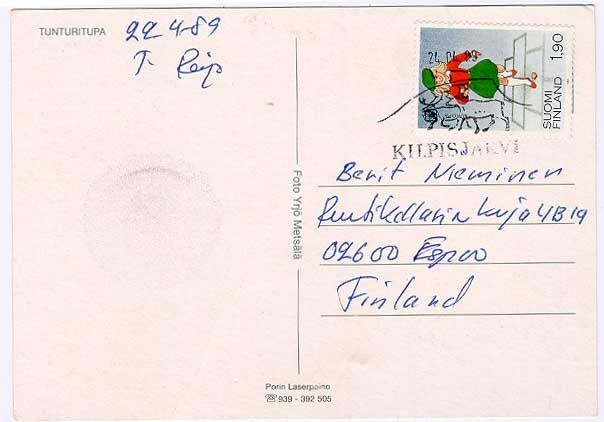 TUNTURITUPA
22 4-89
T. Reijo
SUOMI
FINLAND 1,90
24.04.89
KILPISJÄRVI
Berit Nieminen
Ruutikellarinkuja 4B19
02600 Espoo
Finland
Foto Yrjö Metsälä
Porin Laserpaino
☏ 939 - 392 505